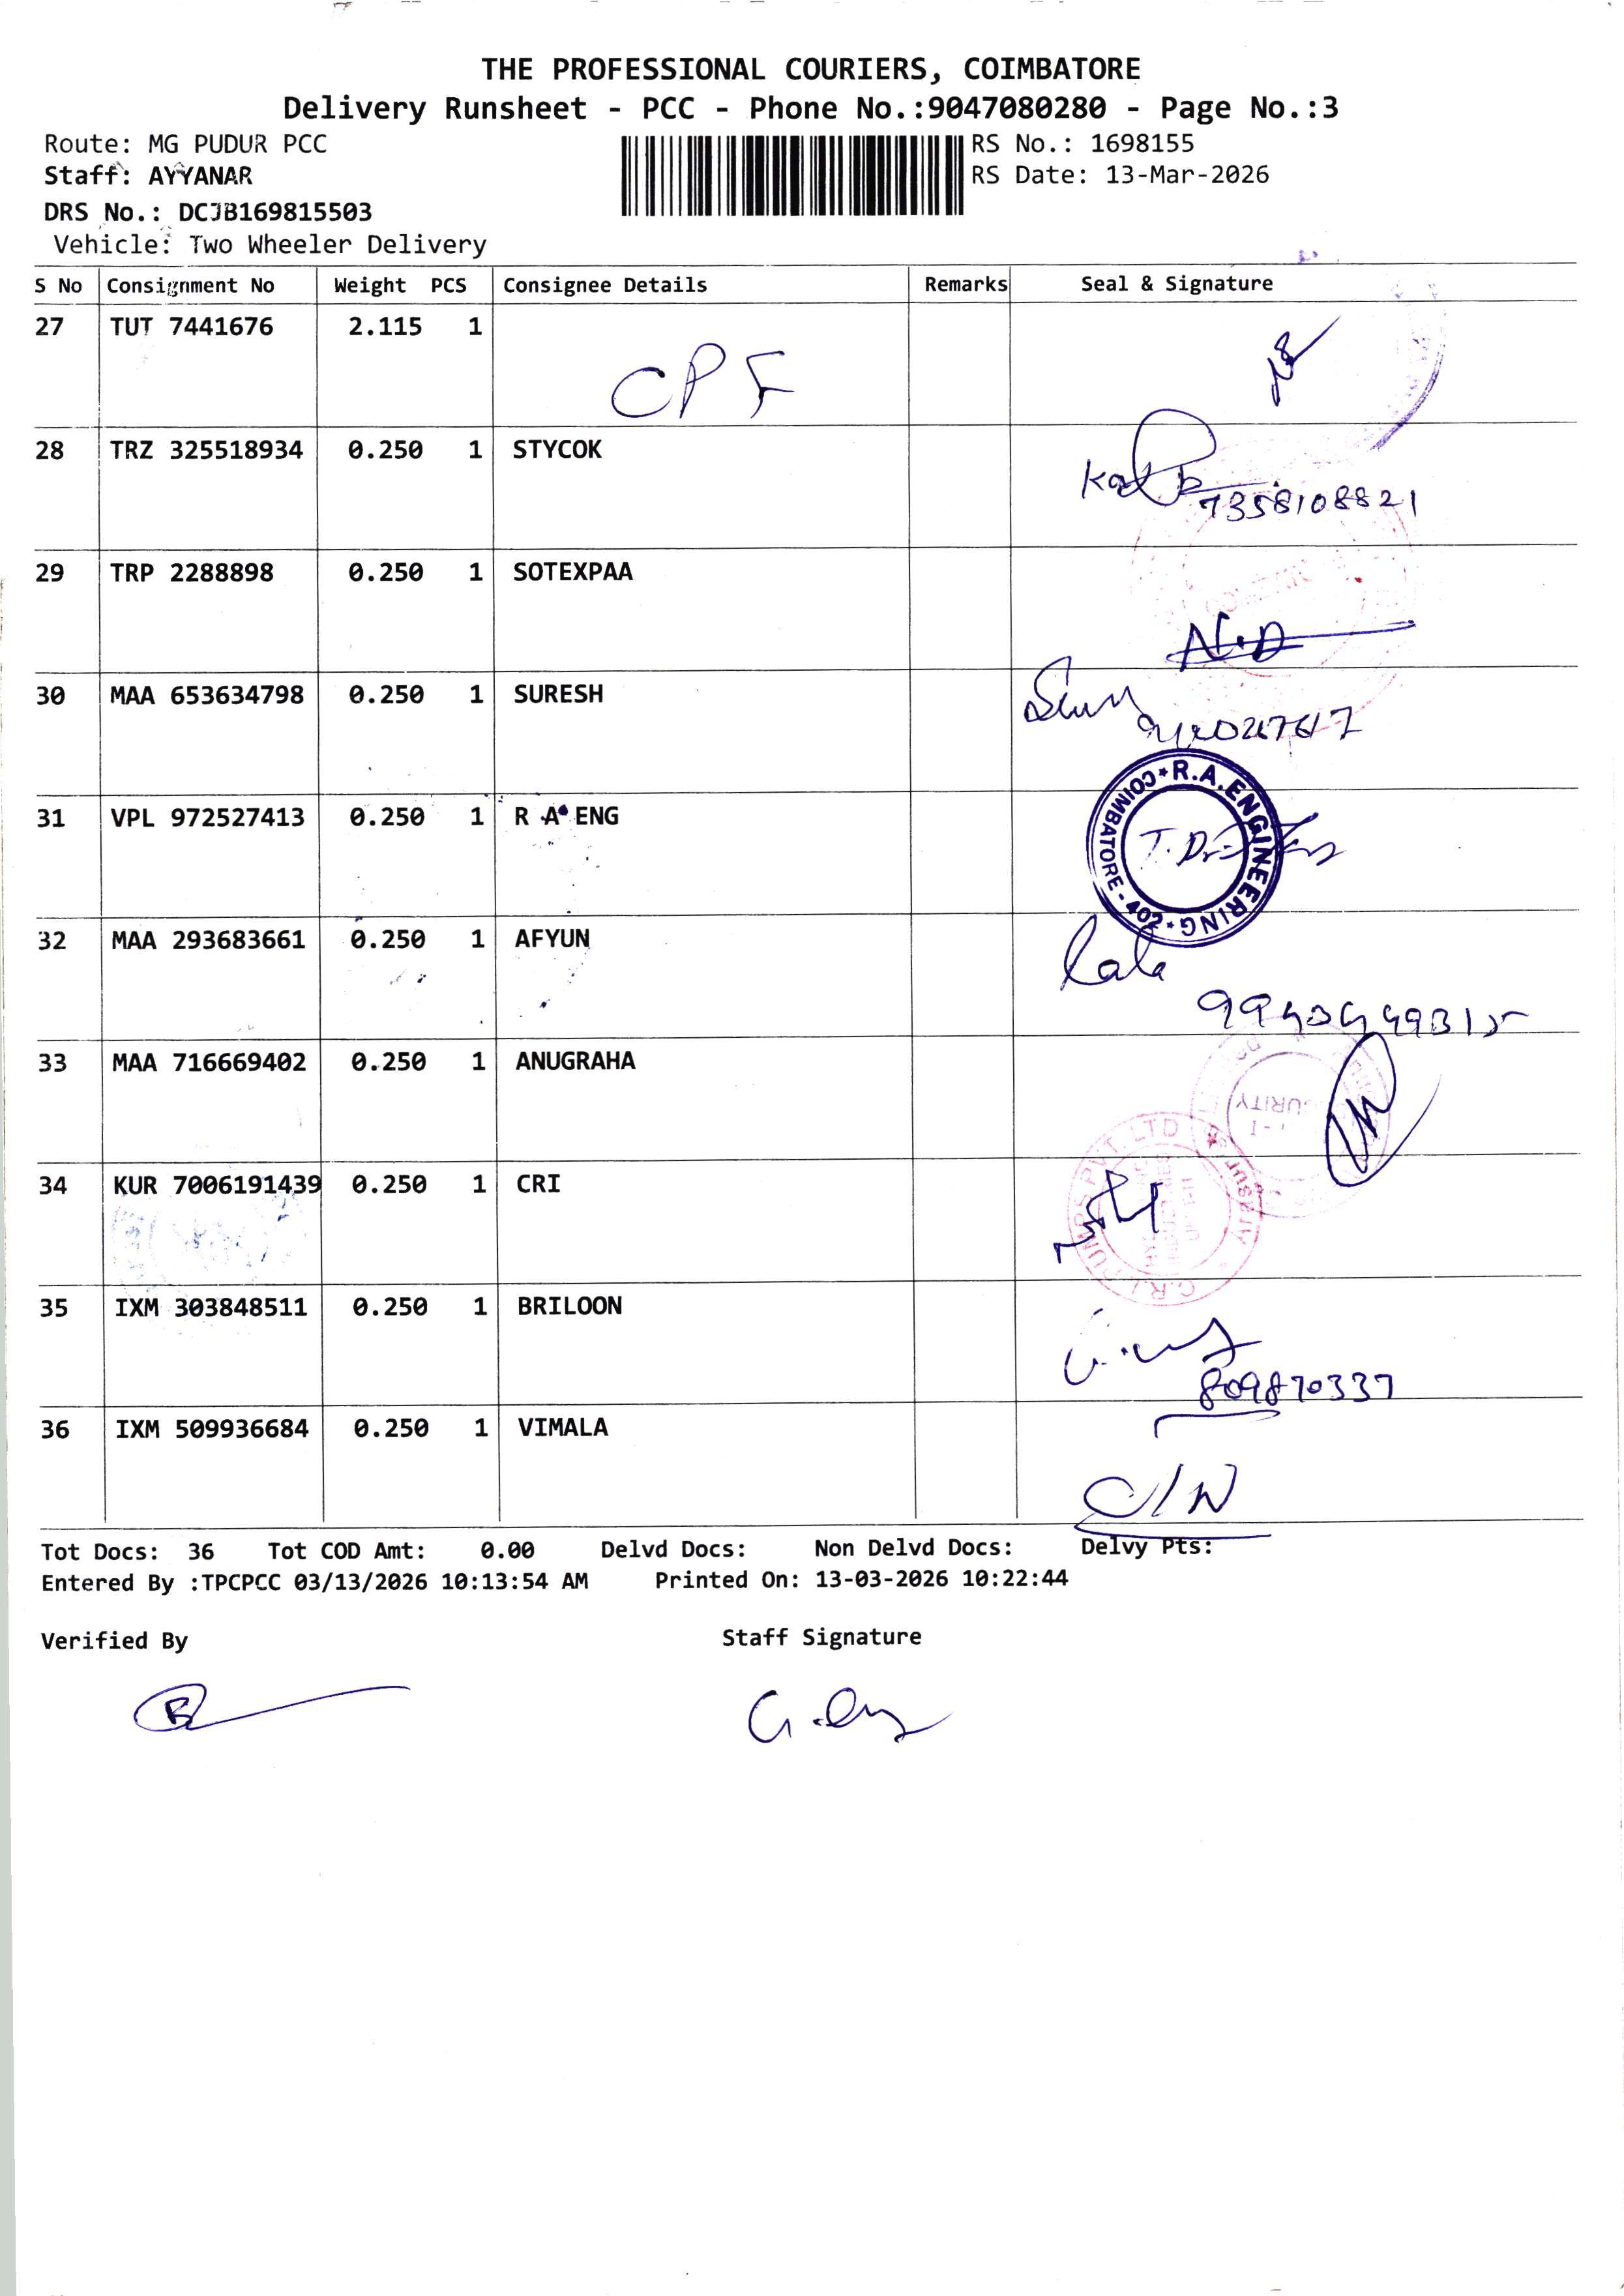 THE PROFESSIONAL COURIERS, COIMBATORE
Delivery Runsheet - PCC - Phone No.:9047080280 - Page No.:3
Route: MG PUDUR PCC
RS No.: 1698155
Staff: AYYANAR
RS Date: 13-Mar-2026
DRS No.: DCJB169815503
Vehicle: Two Wheeler Delivery
S No Consignment No Weight PCS Consignee Details Remarks Seal & Signature
27 TUT 7441676 2.115 1 CPF
28 TRZ 325518934 0.250 1 STYCOK
7358108821
29 TRP 2288898 0.250 1 SOTEXPAA
30 MAA 653634798 0.250 1 SURESH
31 VPL 972527413 0.250 1 R A ENG
R.A.ENGINEERING
COIMBATORE - 402
32 MAA 293683661 0.250 1 AFYUN
33 MAA 716669402 0.250 1 ANUGRAHA
34 KUR 7006191439 0.250 1 CRI
35 IXM 303848511 0.250 1 BRILOON
809870337
36 IXM 509936684 0.250 1 VIMALA
Tot Docs: 36 Tot COD Amt: 0.00 Delvd Docs: Non Delvd Docs: Delvy Pts:
Entered By :TPCPCC 03/13/2026 10:13:54 AM Printed On: 13-03-2026 10:22:44
Verified By Staff Signature